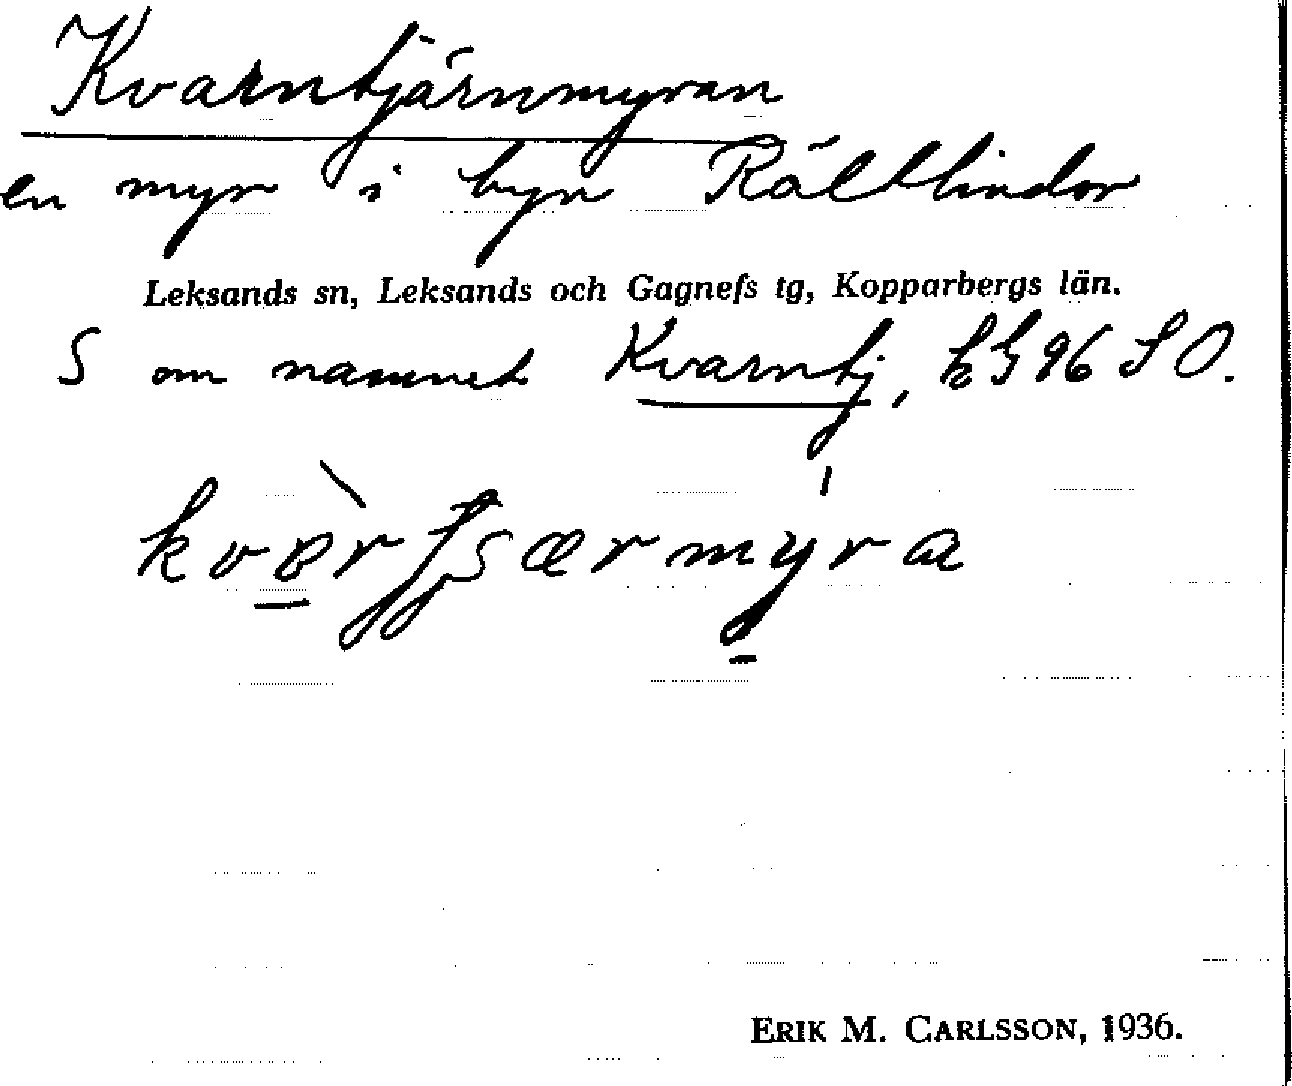 Kvarntjärnmyran
en myr i byn Rältlindor
Leksands sn, Leksands och Gagnefs tg, Kopparbergs län.
S om namnet Kvarntj,
myra
ERIK M. CARLSSON, 1936.